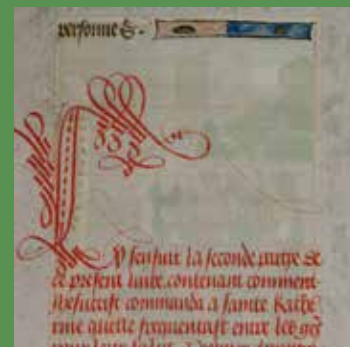 personne &.
Cy sensuit la seconde partie de
ce present liure, contenant comment
ihesucrist commanda a sainte Kathe
rine quelle frequentast entre les gēs
pour leur salut